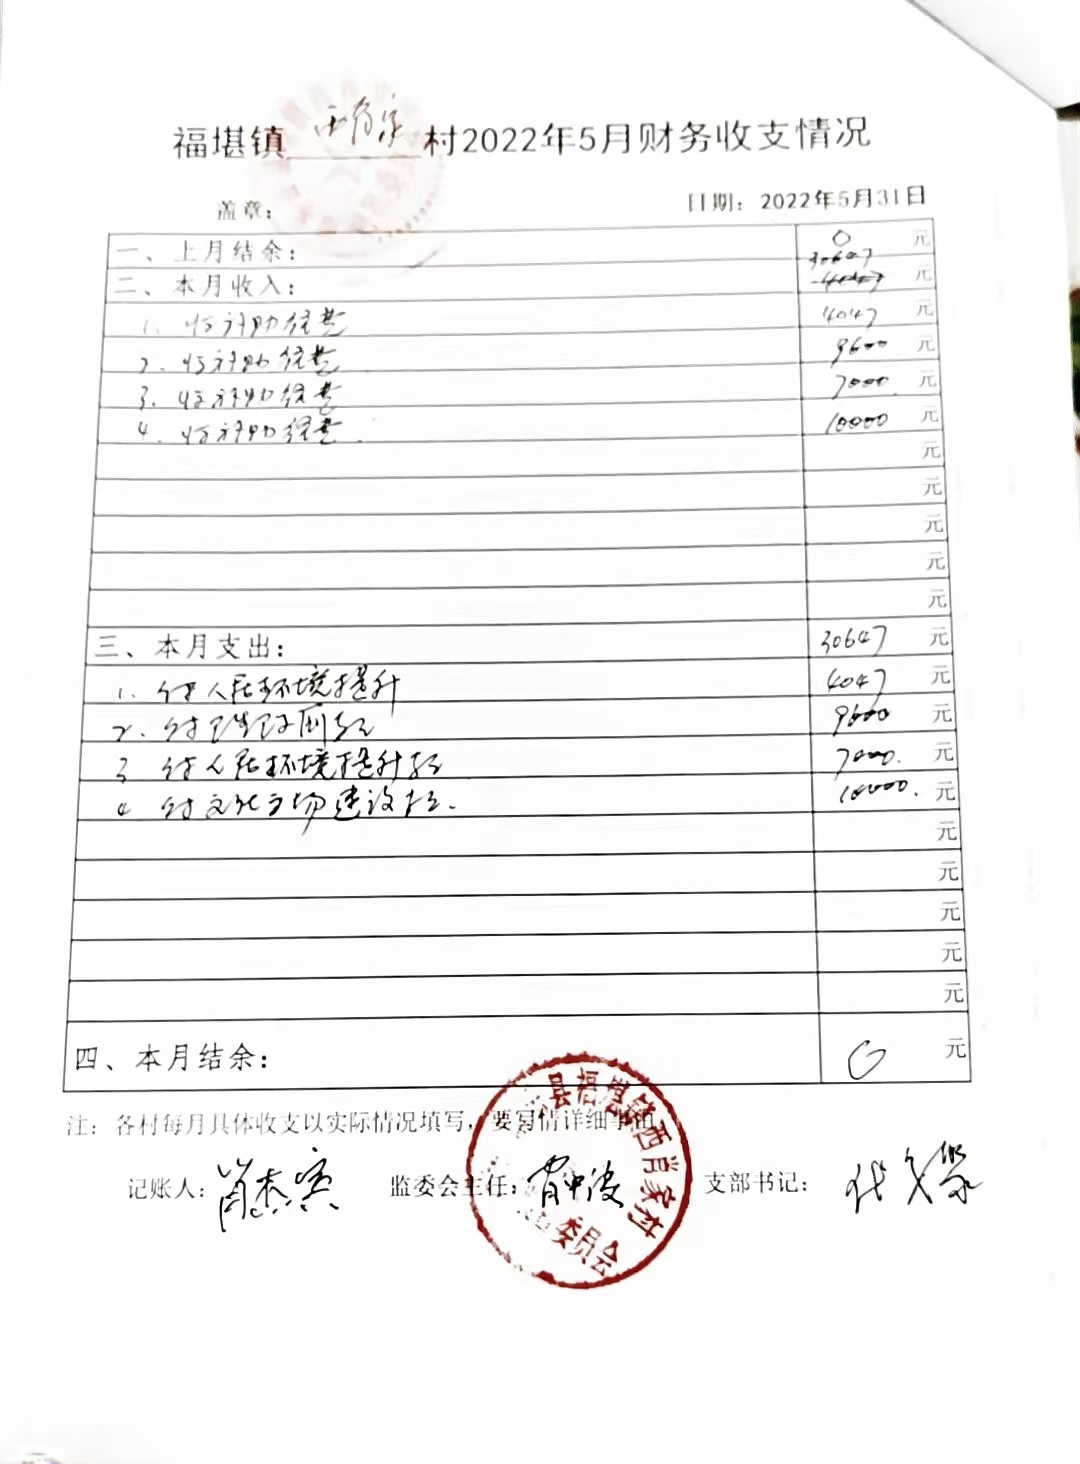 福堪镇西肖家村2022年5月财务收支情况
盖章：
日期：2022年5月31日
一、上月结余： 0 元
二、本月收入： 30647 4047 元
1. 收补助经费 4047 元
2. 收补助经费 9600 元
3. 收补助经费 7000 元
4. 收补助经费 10000 元
元
元
元
元
元
三、本月支出： 30647 元
1. 付人居环境提升 4047 元
2. 付 款 9600 元
3 付人居环境提升款 7000. 元
4 付文化广场建设款. 10000. 元
元
元
元
元
元
四、本月结余： 0 元
注：各村每月具体收支以实际情况填写，要写情详细事由
记账人： 监委会主任： 支部书记：
县福堪镇西肖家村
委员会